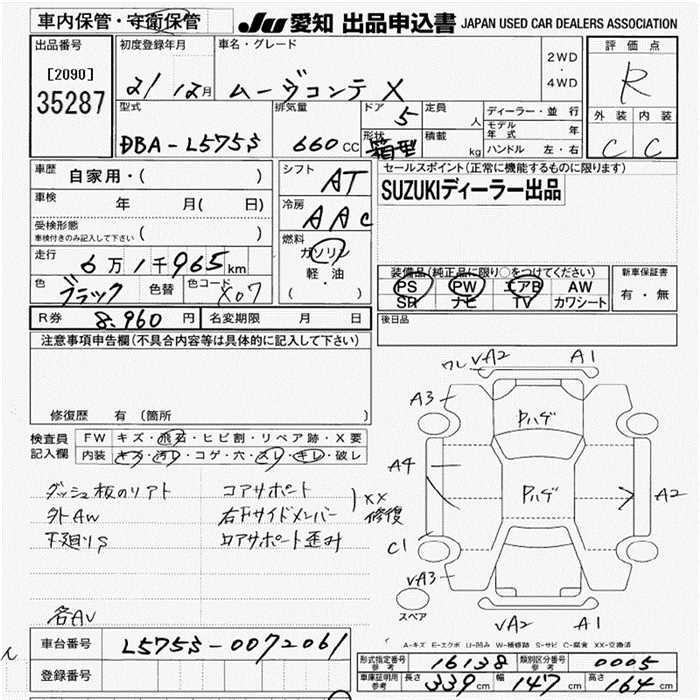 車内保管・守衛保管
JU 愛知 出品申込書 JAPAN USED CAR DEALERS ASSOCIATION
出品番号
[2090]
35287
初度登録年月 21 12月
車名・グレード ムーヴコンテ X
2WD
・
4WD
評価点
R
外装 内装
C C
型式 DBA-L575S
排気量 660 CC
ドア 5
形状 箱型
定員 人
積載 kg
ディーラー・並行
モデル年式 年
ハンドル 左・右
車歴 自家用・( )
車検 年 月( 日)
受検形態
車検付きのみ記入して下さい ( )
走行 6万1千965km
色 ブラック 色替 色コード X07
シフト AT
冷房 AAC
燃料 ガソリン
軽・油
( ・ )
セールスポイント(正常に機能するものに限ります)
SUZUKIディーラー出品
装備品(純正品に限り○をつけてください)
PS PW エアB AW
SR ナビ TV カワシート
新車保証書
有・無
後日品
R券 8,960 円 名変期限 月 日
注意事項申告欄(不具合内容等は具体的に記入して下さい)
修復歴 有(箇所 )
検査員記入欄 FW キズ・飛石・ヒビ割・リペア跡・X要
内装 キズ・汚レ・コゲ・穴・スレ・キレ・破レ
コアサポート
外AW 右下サイドメンバー XX
修復
下廻りS コアサポート歪み
各AV
ワレ VA2 A1
A3
Pハゲ
A4
Pハゲ
A2
C1
VA3
スペア
VA2 A1
A-キズ E-エクボ U-凹み W-補修跡 S-サビ C-腐食 XX-交換済
車台番号 L575S-0072061
登録番号
形式指定番号 参考 16138 類別区分番号 参考 0005
車庫証明用 参考 長さ 339cm 幅 147cm 高さ 164cm